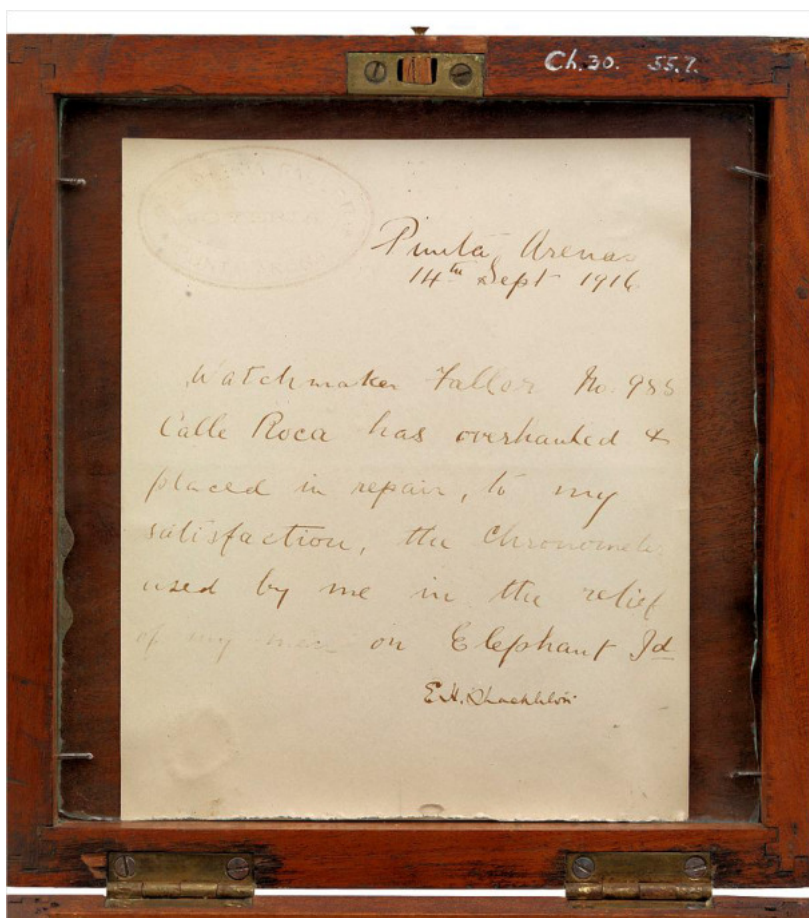 Ch.30. 55.7.
Punta Arenas
14th Sept 1916
Watchmaker Fallor No. 988
Calle Roca has overhauled &
placed in repair, to my
satisfaction, the Chronometer
used by me in the relief
of my men on Elephant Id
E.H. Shackleton